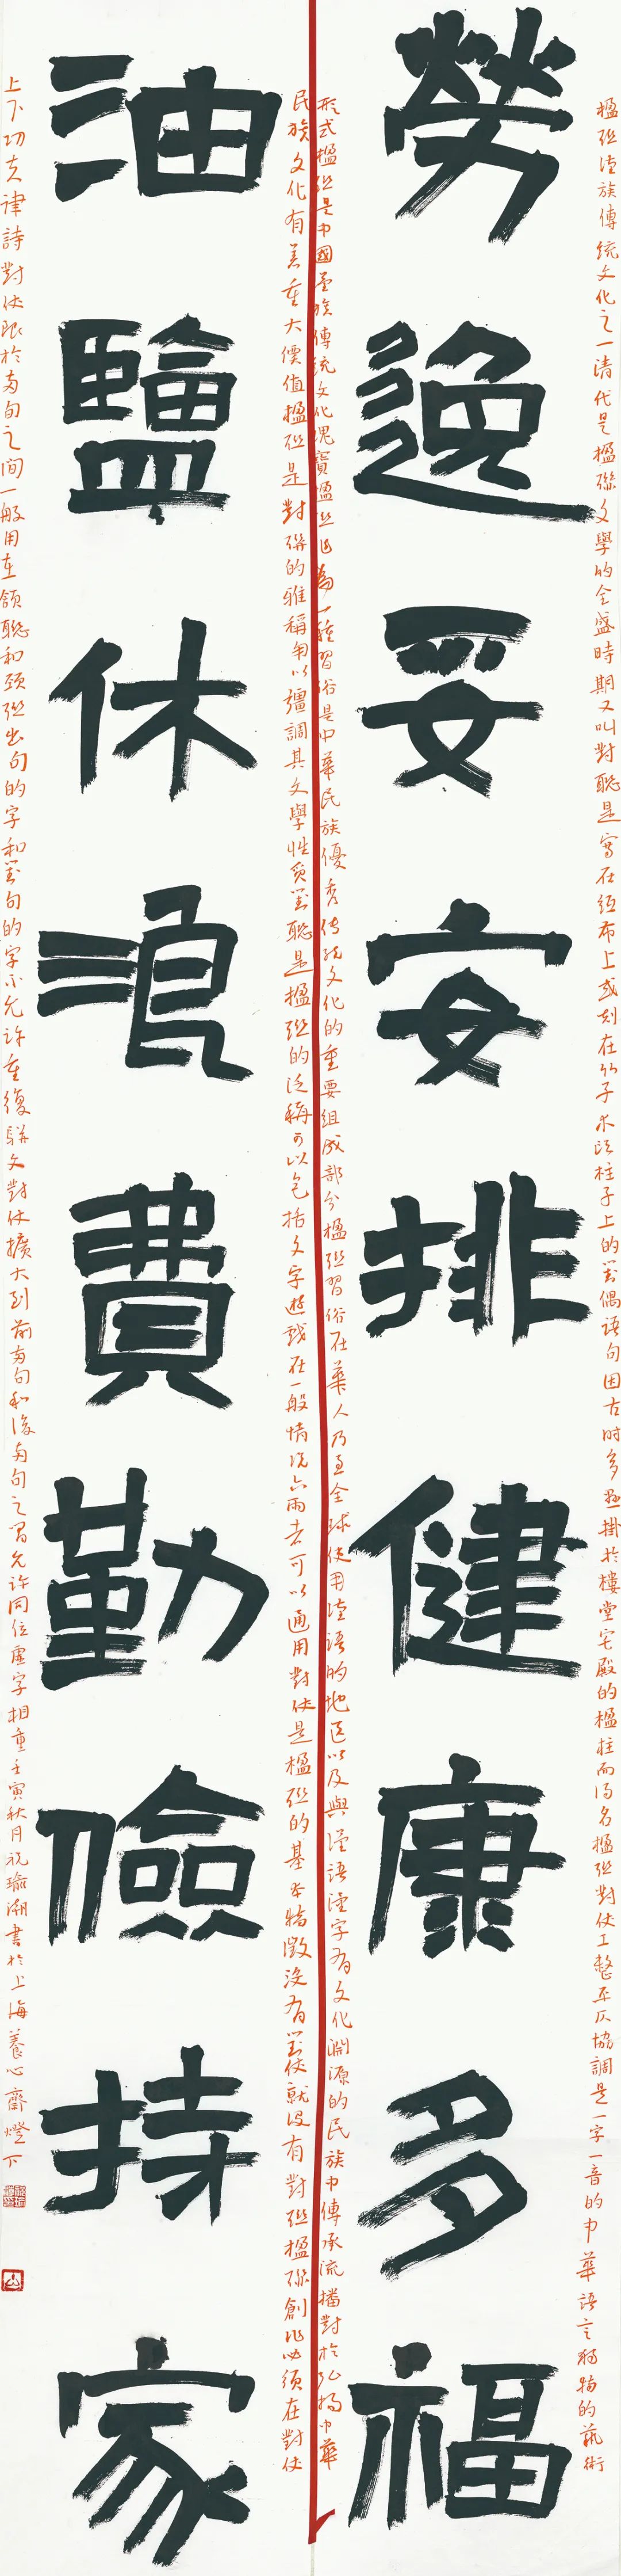 楹联漢族傳統文化之一清代是楹聯文學的全盛時期又叫對聰是寫在紙布上或刻在竹子木頭柱子上的對偶語句因古时多懸掛於樓堂宅殿的楹柱而得名楹联對仗工整平仄協調是一字一音的中華語言独特的藝術
勞逸妥安排健康多福
形式楹联是中國漢族傳統文化瑰寶楹联作為一種習俗是中華民族優秀傳統文化的重要組成部分楹联習俗在華人乃至全球使用漢語的地区以及與漢語漢字有文化淵源的民族中傳承流播對於弘揚中華
民族文化有著重大價值楹联是對联的雅稱用以彊調其文學性質對聰是楹联的泛稱可以包括文字遊戲在一般情況下兩者可以通用對仗是楹联的基本特徵沒有對仗就沒有對联楹联創作必須在對仗
油鹽休浪費勤儉持家
上下功夫律詩對仗限於兩句之間一般用在頷聰和頸联出句的字和對句的字不允許重復駢文對仗擴大到前兩句和後兩句之間允許同位虛字相重壬寅秋月祝瑜潮書於上海養心齋燈下